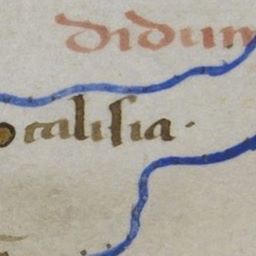 didum
ocalisia·